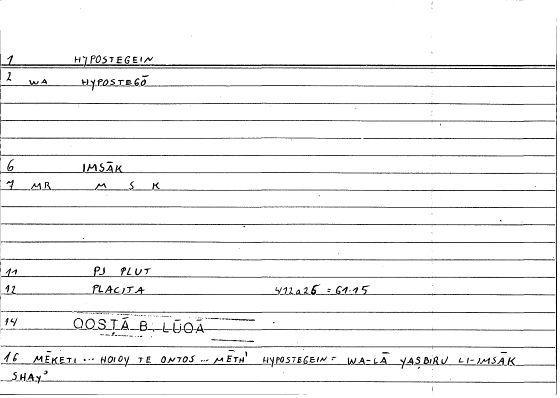 1 HYPOSTEGEIN
2 WA HYPOSTEGŌ
6 IMSĀK
7 MR M S K
11 PJ PLUT
12 PLACITA 412a26 = 61.15
14 QOSṬĀ B. LŪQĀ
16 MĒKETI ... HOIOY TE ONTOS ... MĒTH' HYPOSTEGEIN = WA-LĀ YAṢBIRU LI-IMSĀK
SHAYʾ